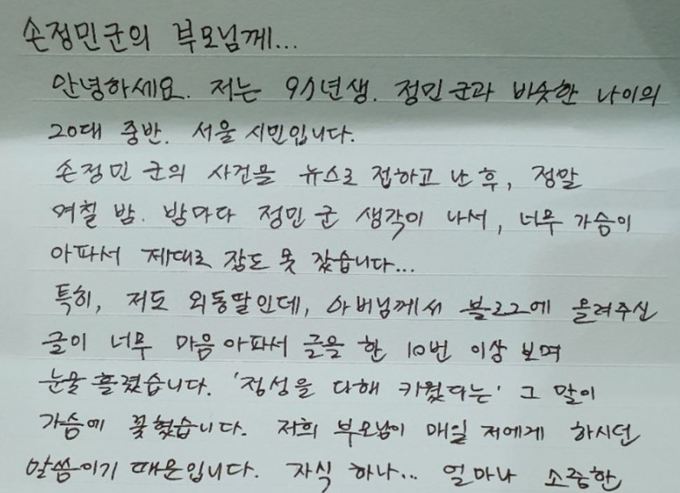 손정민군의 부모님께...
안녕하세요. 저는 95년생. 정민군과 비슷한 나이의
20대 중반. 서울 시민입니다.
손정민 군의 사건을 뉴스로 접하고 난 후, 정말
며칠 밤. 밤마다 정민 군 생각이 나서, 너무 가슴이
아파서 제대로 잠도 못 잤습니다...
특히, 저도 외동딸인데, 아버님께서 블로그에 올려주신
글이 너무 마음 아파서 글을 한 10번 이상 보며
눈물 흘렸습니다. '정성을 다해 키웠다는' 그 말이
가슴에 꽂혔습니다. 저희 부모님이 매일 저에게 하시던
말씀이기 때문입니다. 자식 하나... 얼마나 소중한